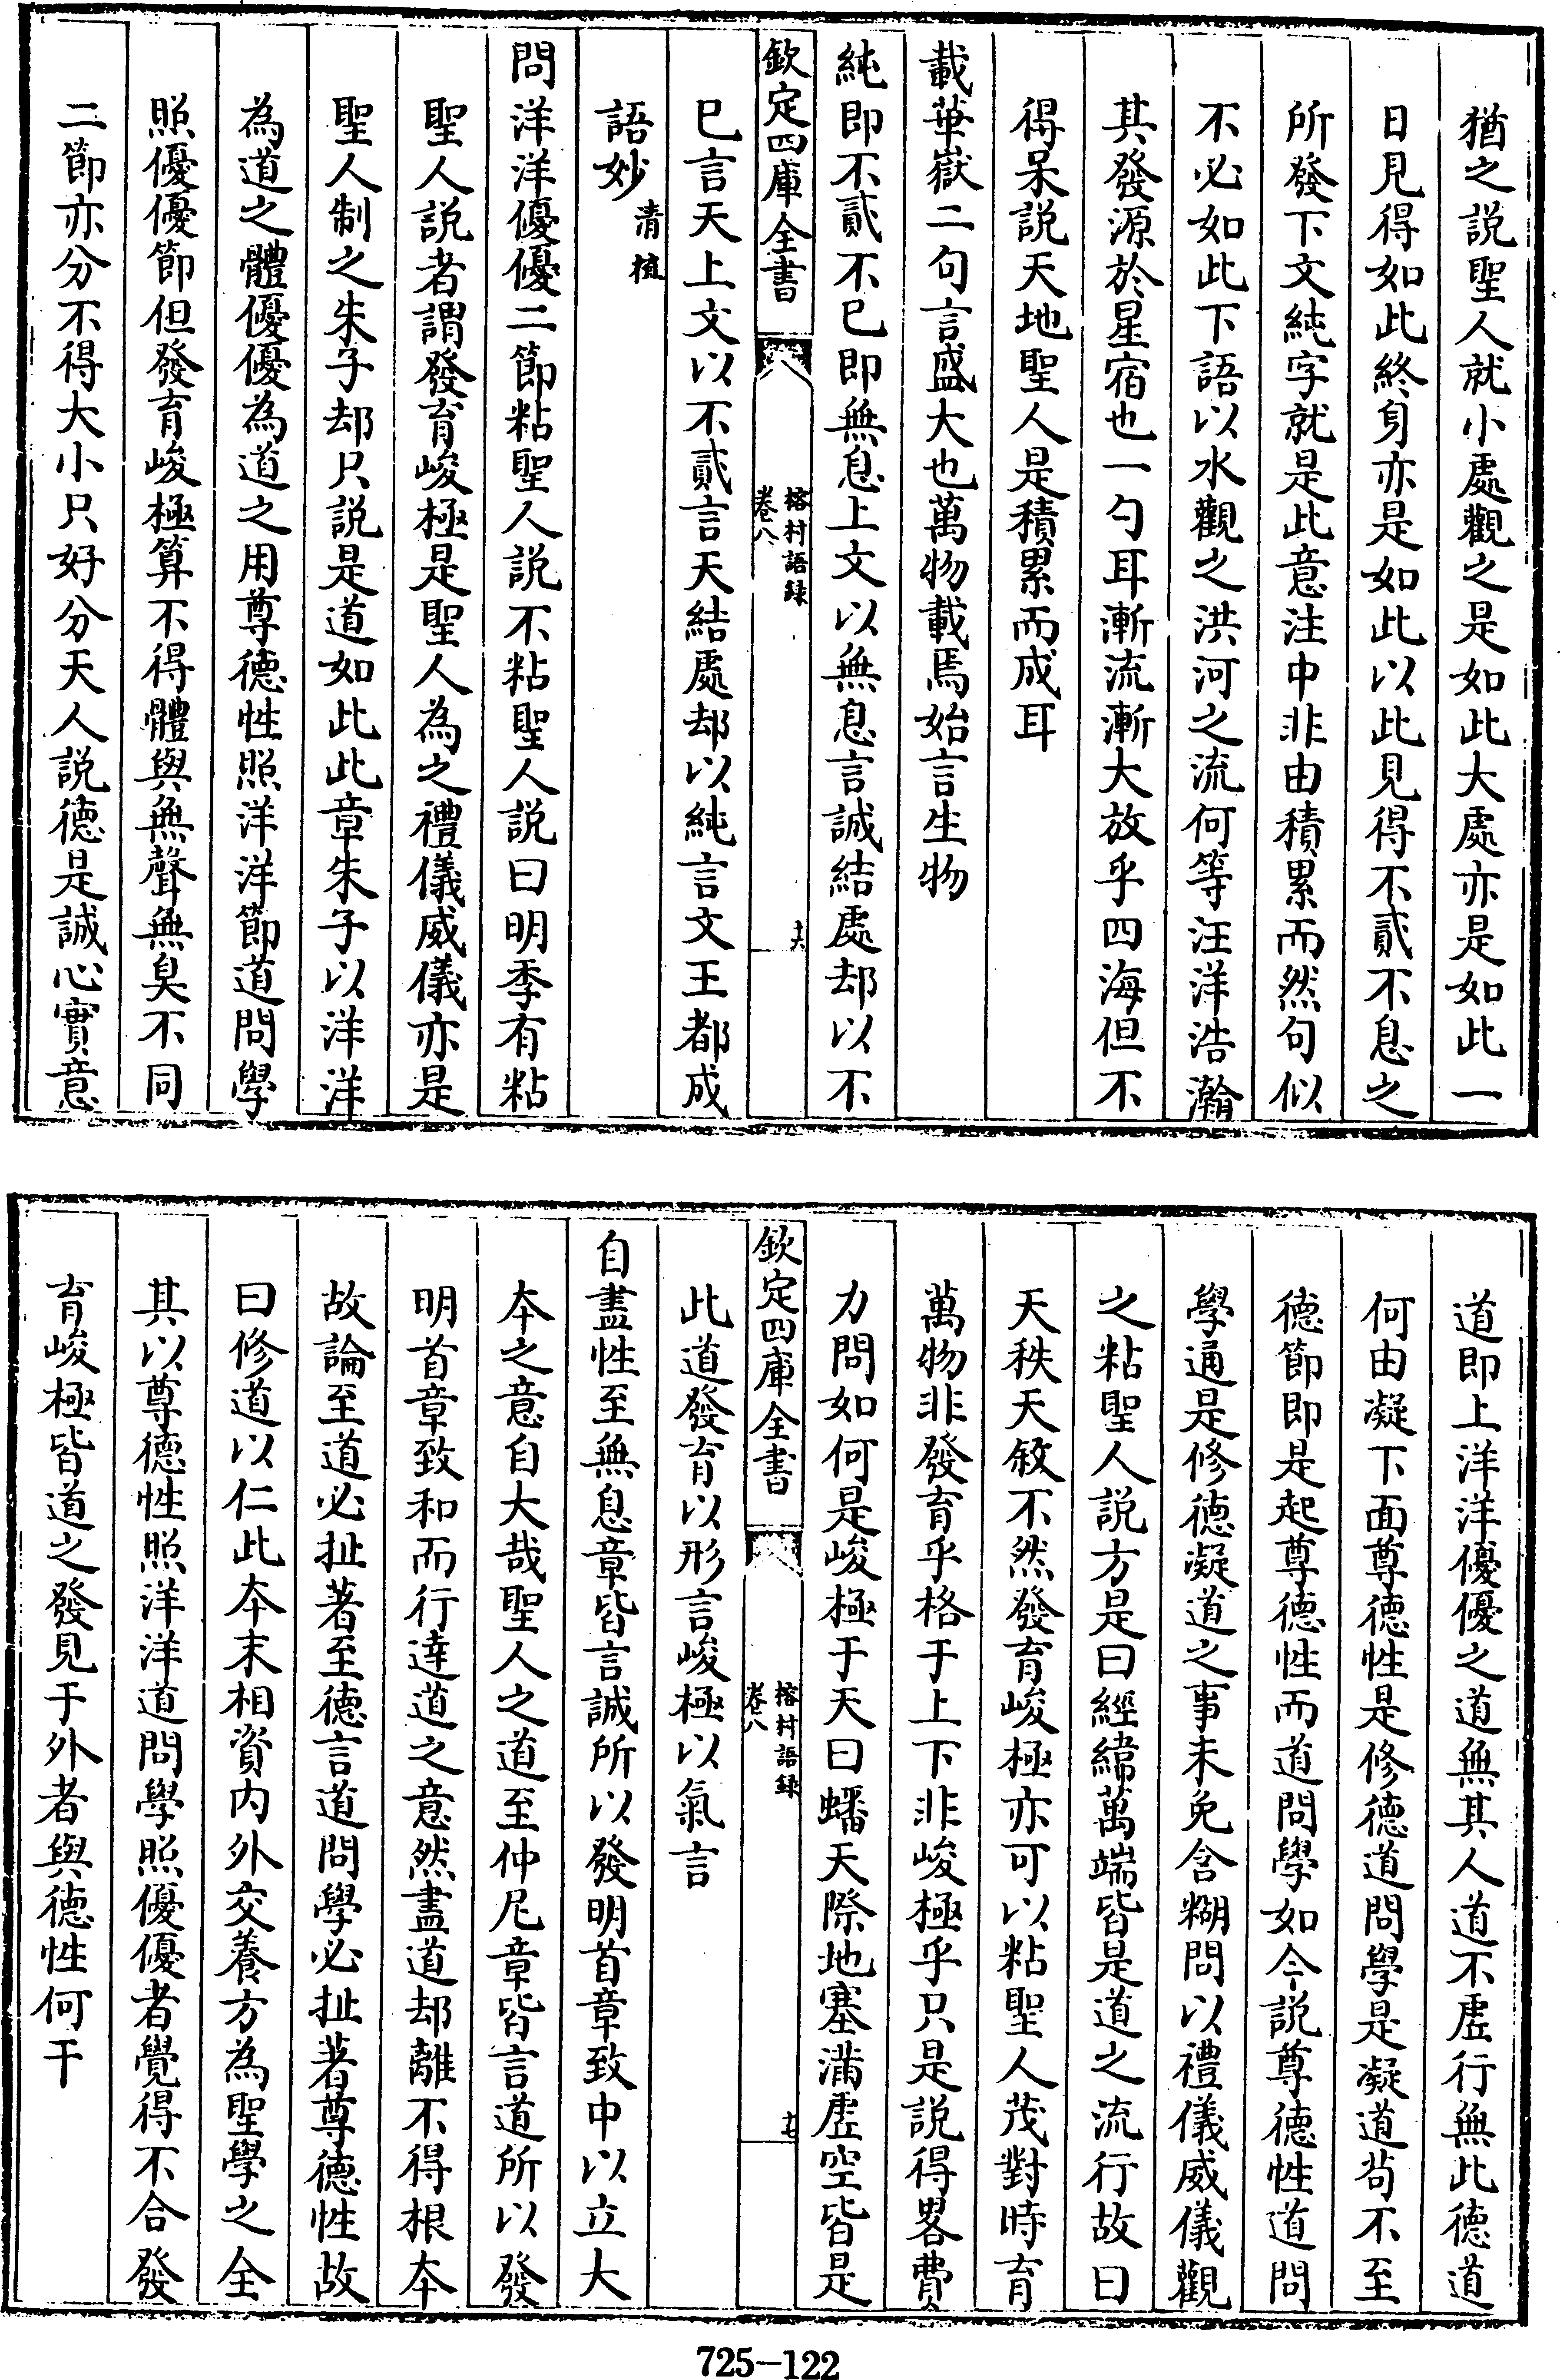 猶之説聖人就小處觀之是如此大處亦是如此一
日見得如此終身亦是如此以此見得不貳不息之
所發下文純字就是此意注中非由積累而然句似
不必如此下語以水觀之洪河之流何等汪洋浩瀚
其發源於星宿也一勺耳漸流漸大放乎四海但不
得呆説天地聖人是積累而成耳
載華嶽二句言盛大也萬物載焉始言生物
純即不貳不已即無息上文以無息言誠結處却以不
欽定四庫全書
榕村語録
卷八
十六
已言天上文以不貳言天結處却以純言文王都成
語妙清植
問洋洋優優二節粘聖人説不粘聖人説曰明季有粘
聖人説者謂發育峻極是聖人為之禮儀威儀亦是
聖人制之朱子却只説是道如此此章朱子以洋洋
為道之體優優為道之用尊德性照洋洋節道問學
照優優節但發育峻極算不得體與無聲無臭不同
二節亦分不得大小只好分天人説德是誠心實意
道即上洋洋優優之道無其人道不虛行無此德道
何由凝下面尊德性是修德道問學是凝道苟不至
德節即是起尊德性而道問學如今説尊德性道問
學通是修德凝道之事未免含糊問以禮儀威儀觀
之粘聖人説方是曰經緯萬端皆是道之流行故曰
天秩天敘不然發育峻極亦可以粘聖人茂對時育
萬物非發育乎格于上下非峻極乎只是説得畧費
力問如何是峻極于天曰蟠天際地塞滿虛空皆是
欽定四庫全書
榕村語録
卷八
十七
此道發育以形言峻極以氣言
自盡性至無息章皆言誠所以發明首章致中以立大
本之意自大哉聖人之道至仲尼章皆言道所以發
明首章致和而行達道之意然盡道却離不得根本
故論至道必扯著至德言道問學必扯著尊德性故
曰修道以仁此本末相資内外交養方為聖學之全
其以尊德性照洋洋道問學照優優者覺得不合發
育峻極皆道之發見于外者與德性何干
725-122